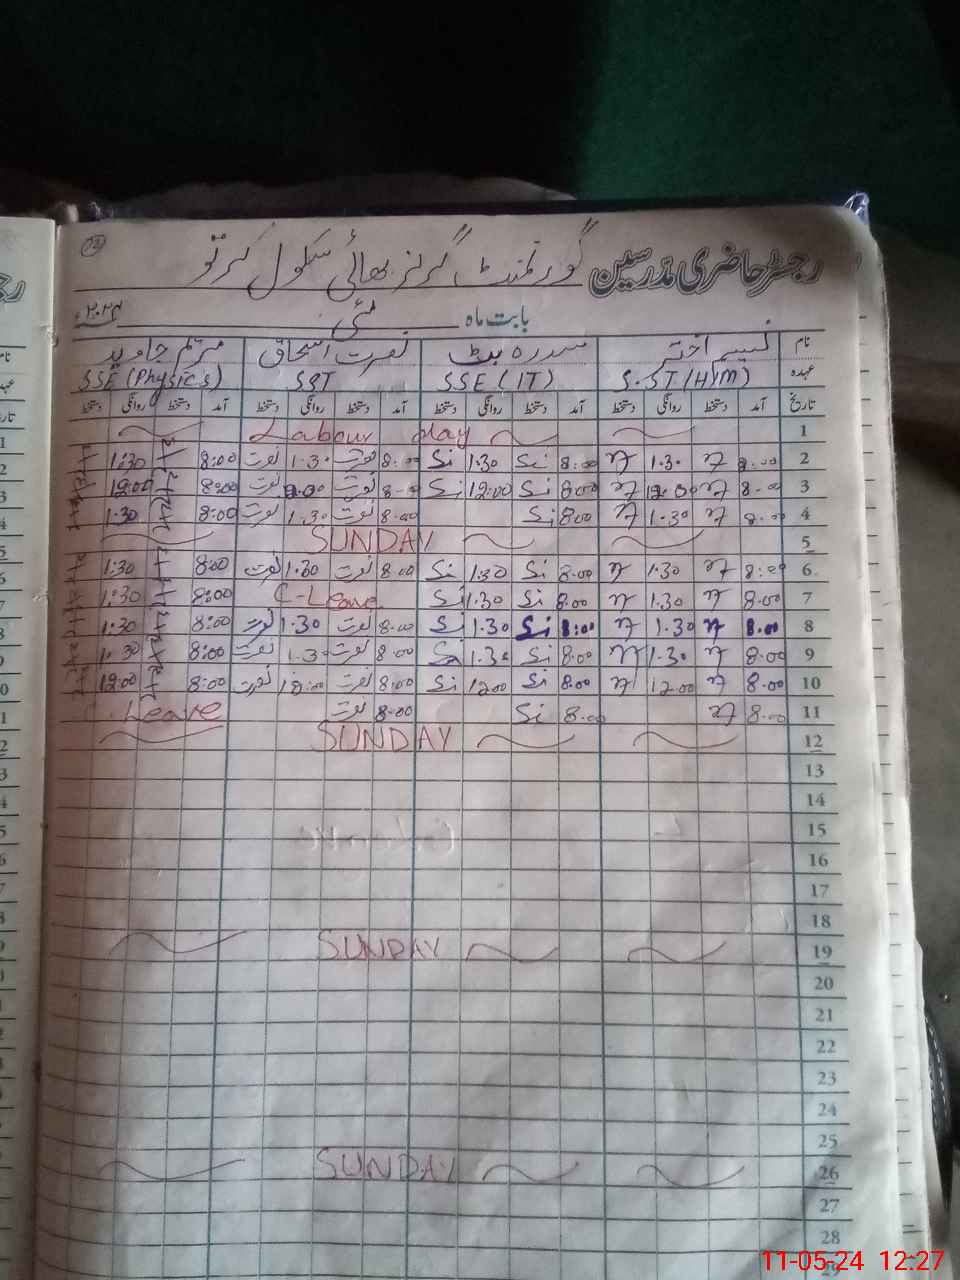 12
رجسٹر حاضری مدرسین گورنمنٹ گرلز ہائی سکول کرتو
بابت ماہ مئی ۲۰۲۴
نام اختر سدرہ بٹ نصرت اسحاق مریم جاوید
عہدہ S.ST (H/M) SSE (IT) SST SSE (Physics)
تاریخ آمد دستخط روانگی دستخط آمد دستخط روانگی دستخط آمد دستخط روانگی دستخط آمد دستخط روانگی دستخط
1 Labour day
2 8.00 1.30 8:00 Si 1.30 Si 8.00 نصرت 1.30 نصرت 8:00 1:30
3 8.00 12.00 8.00 Si 12:00 Si 8.00 نصرت نصرت 8:00 12:00
4 8.00 1.30 8.00 Si 8.00 نصرت 1.30 نصرت 8:00 1:30
5 SUNDAY
6 8:00 1.30 8.00 Si 1.30 Si 8.00 نصرت 1.30 نصرت 8:00 1:30
7 8.00 1.30 8.00 Si 1.30 Si C-Leave 8:00 1:30
8 8.00 1.30 8:00 Si 1.30 Si 8.00 نصرت 1.30 نصرت 8:00 1:30
9 8.00 1.30 8.00 Si 1.30 Si 8.00 نصرت 1.30 نصرت 8:00 1:30
10 8.00 12.00 8.00 Si 12.00 Si 8:00 نصرت 12:00 نصرت 8:00 12:00
11 8.00 8.00 Si 8.00 نصرت Leave
12 SUNDAY
13
14
15
16
17
18
19 SUNDAY
20
21
22
23
24
25
26 SUNDAY
27
28
29
11-05-24 12:27